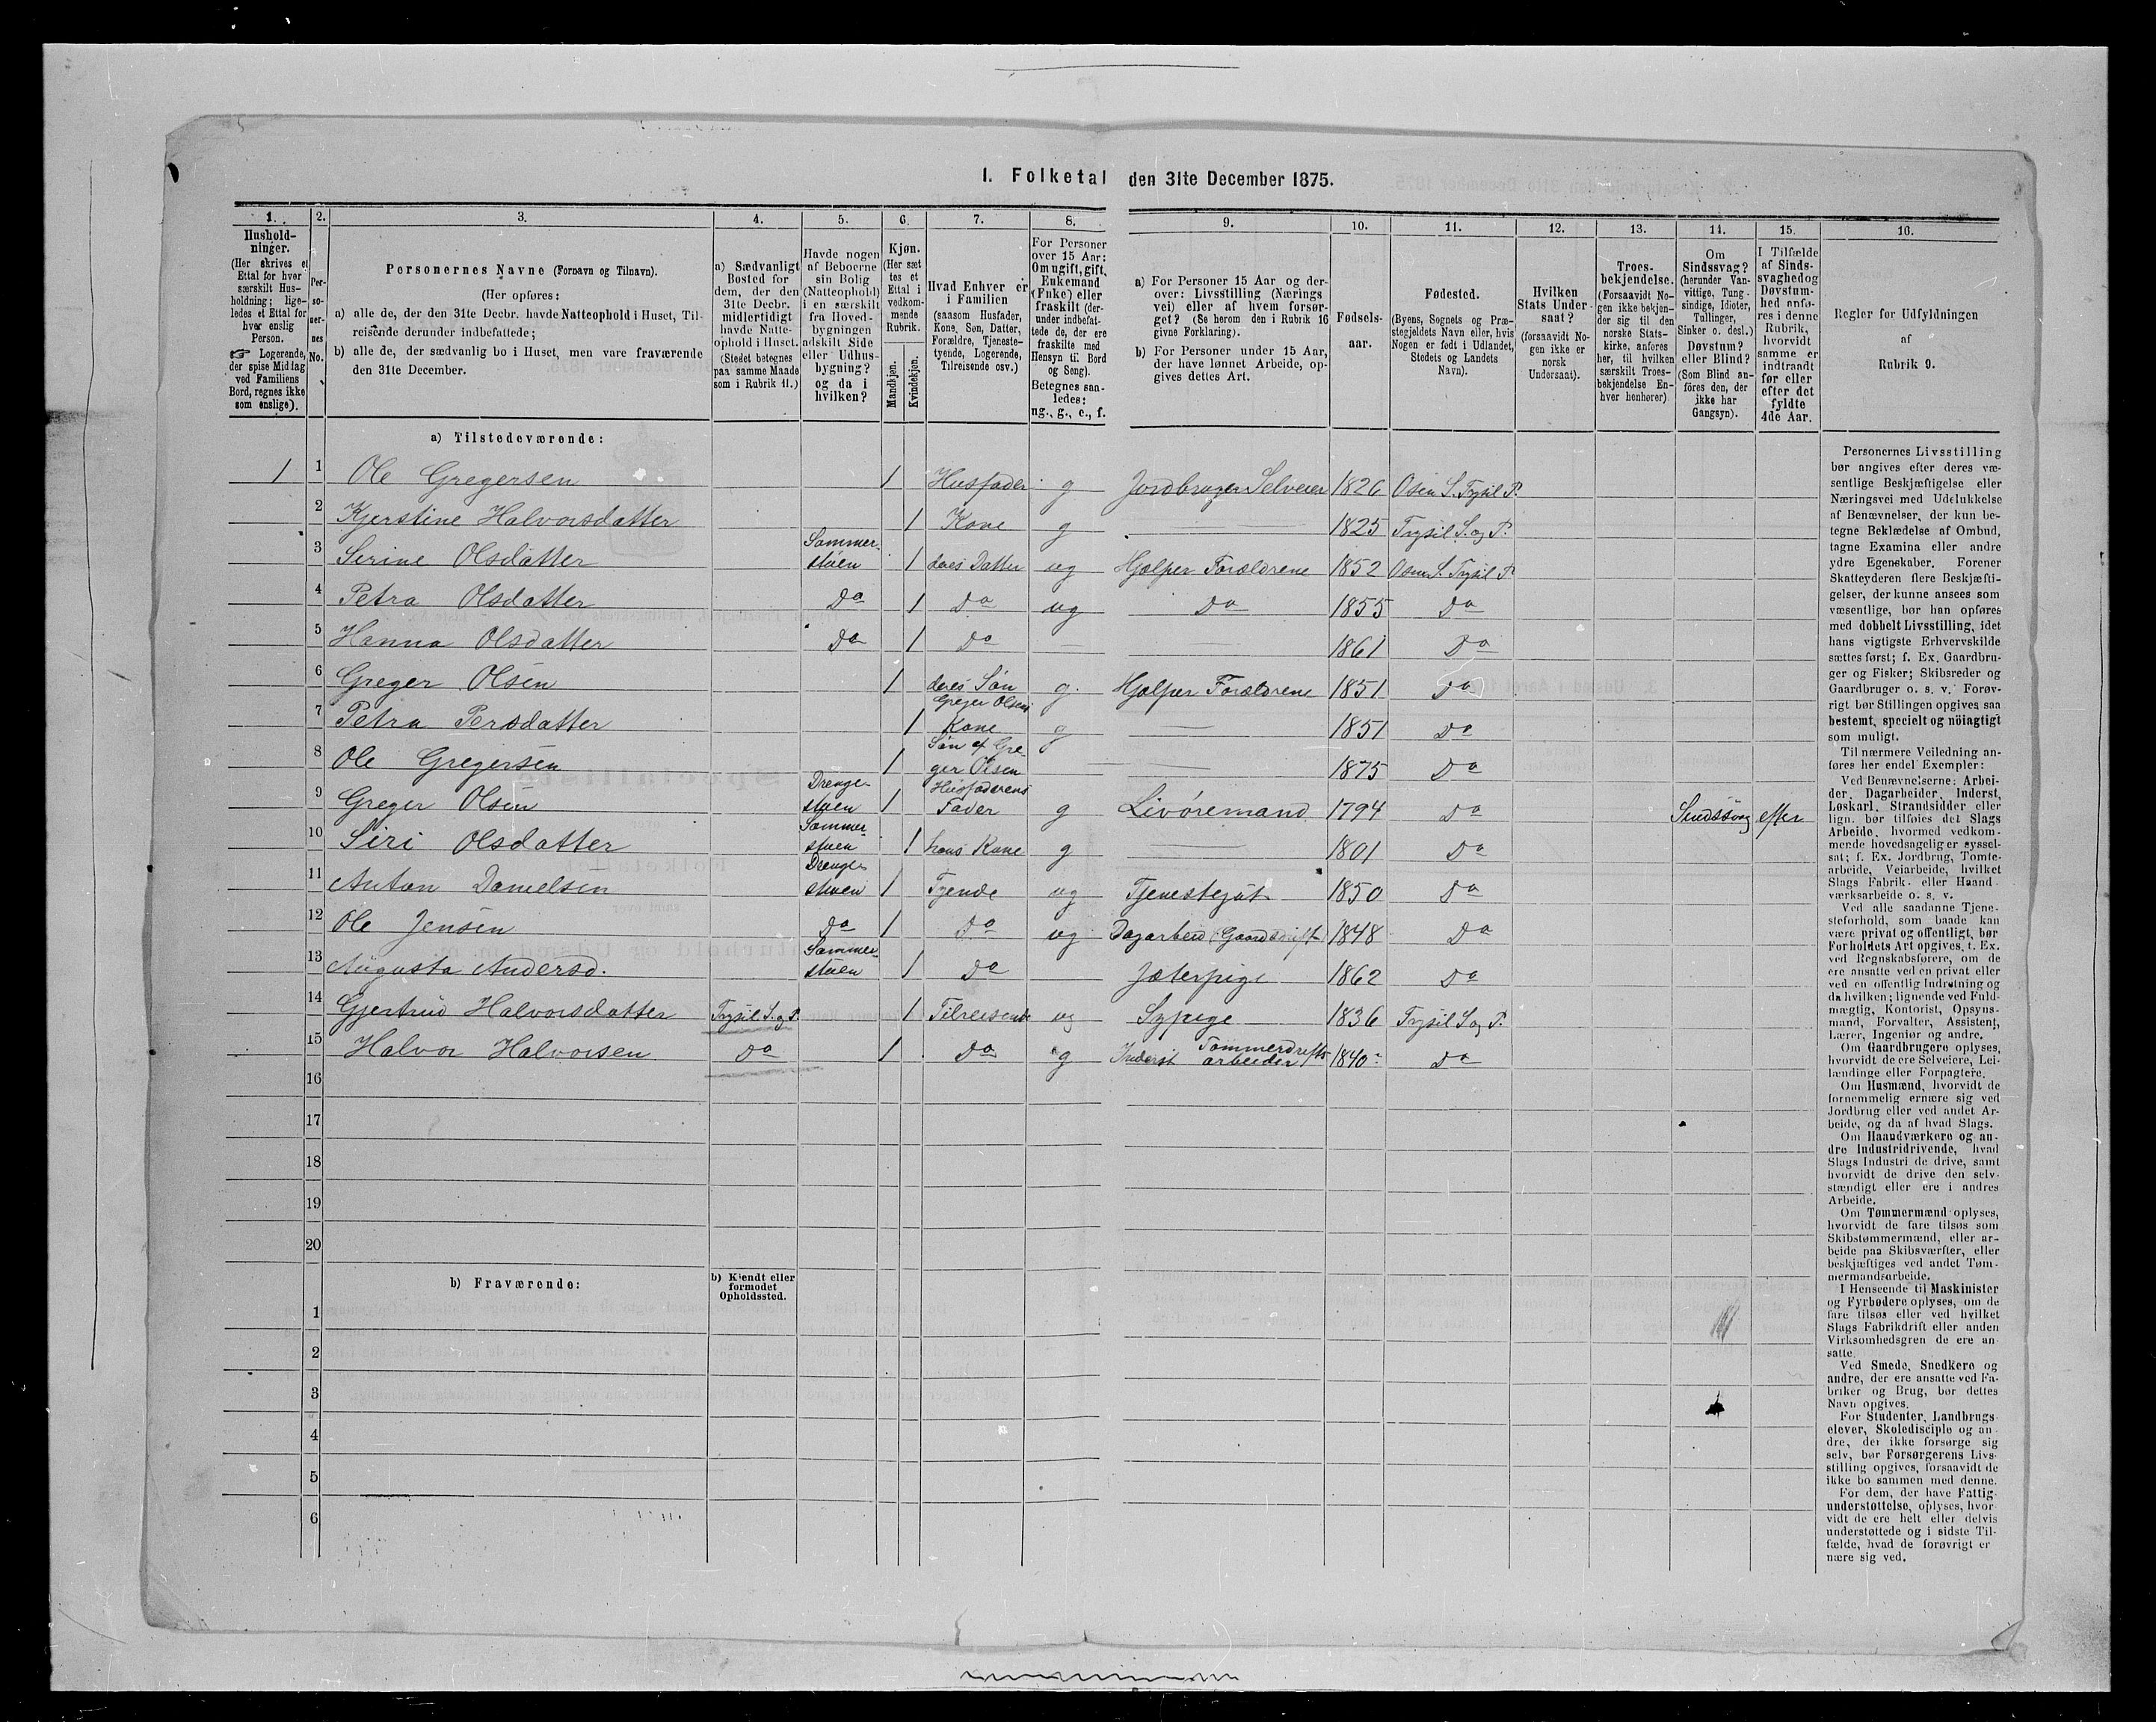 1. Folketal den 31te December 1875.
1.
Hushold-
ninger.
(Her skrives et
Ettal for hver
særskilt Hus-
holdning; lige-
ledes et Ettal for
hver enslig
Person.
☞ Logerende,
der spise Middag
ved Familiens
Bord, regnes ikke
som enslige).
2.
Per-
so-
ner-
nes
No.
3.
Personernes Navne (Fornavn og Tilnavn).
(Her opføres:
a) alle de, der den 31te Decbr. havde Natteophold i Huset, Til-
reisende derunder indbefattede;
b) alle de, der sædvanlig bo i Huset, men vare fraværende
den 31te December.
4.
a) Sædvanligt
Bosted for
dem, der den
31te Decbr.
midlertidigt
havde Natte-
ophold i Huset.
(Stedet betegnes
paa samme Maade
som i Rubrik 11.)
5.
Havde nogen
af Beboerne
sin Bolig
(Natteophold)
i en særskilt
fra Hoved-
bygningen
adskilt Side
eller Udhus-
bygning?
og da i
hvilken?
6.
Kjøn.
(Her sæt
tes et
Ettal i
vedkom-
mende
Rubrik.
Mandkjøn.
Kvindekjøn.
7.
Hvad Enhver er
i Familien
(saasom Husfader,
Kone, Søn, Datter,
Forældre, Tjeneste-
tyende, Logerende,
Tilreisende osv.)
8.
For Personer
over 15 Aar:
Om ugift, gift,
Enkemand
(Enke) eller
fraskilt (der-
under indbefat-
tede de, der ere
fraskilte med
Hensyn til Bord
og Seng).
Betegnes saa-
ledes:
ug., g., e., f.
9.
a) For Personer 15 Aar og der-
over: Livsstilling (Nærings
vei) eller af hvem forsør-
get? (Se herom den i Rubrik 16
givne Forklaring).
b) For Personer under 15 Aar,
der have lønnet Arbeide, op-
gives dettes Art.
10.
Fødsels-
aar.
11.
Fødested.
(Byens, Sognets og Præ-
stegjeldets Navn eller, hvis
Nogen er født i Udlandet,
Stedets og Landets
Navn).
12.
Hvilken
Stats Under-
saat?
(forsaavidt No-
gen ikke er
norsk
Undersaat).
13.
Troes-
bekjendelse.
(Forsaavidt No-
gen ikke bekjen-
der sig til den
norske Stats-
kirke, anføres
her, til hvilken
særskilt Troes-
bekjendelse En-
hver henhører)
14.
Om
Sindssvag?
(herunder Van-
vittige, Tung-
sindige, Idioter,
Tullinger,
Sinker o. desl.)
Døvstum?
eller Blind?
(Som Blind an-
føres den, der
ikke har
Gangsyn).
15.
I Tilfælde
af Sinds-
svaghed og
Døvstum-
hed anfø-
res i denne
Rubrik,
hvorvidt
samme er
indtraadt
før eller
efter det
fyldte
4de Aar.
16.
Regler for Udfyldningen
af
Rubrik 9.
a) Tilstedeværende:
1 1 Ole Gregersen 1 Husfader g Jordbruger Selveier 1826 Osen S. Trysil P.
2 Kjerstine Halvorsdatter 1 Kone g 1825 Trysil S. og P.
3 Serine Olsdatter Sommer-
stuen 1 deres Datter ug Hjelper Forældrene 1852 Osen S. Trysil P
4 Petra Olsdatter Do 1 Do ug Do 1855 Do
5 Hanna Olsdatter Do 1 Do 1861 Do
6 Greger Olsen 1 deres Søn g. Hjelper Forældrene 1851 Do
7 Petra Persdatter 1 Greger Olsens
Kone g 1851 Do
8 Ole Gregersen 1 Søn af Gre-
ger Olsen 1875 Do
9 Greger Olsen Drenge-
stuen 1 Husfaderens
Fader g Livøremand 1794 Do Sindssvag efter
10 Siri Olsdatter Sommer
stuen 1 hans Kone g 1801 Do
11 Anton Danielsen Drenge-
stuen 1 Tyende ug Tjenestegut 1850 Do
12 Ole Jensen Do 1 Do ug Dagarbeid (Gaardsdrift) 1848 Do
13 Augusta Andersd. Sommer-
stuen 1 Do Jæterpige 1862 Do
14 Gjertrud Halvorsdatter Trysil S. og P. 1 Tilreisende ug Sypige 1836 Trysil S og P.
15 Halvor Halvorsen Do 1 Do g Inderst Tømmerdrifts
arbeider 1840 Do
16
17
18
19
20
b) Fraværende:
b) Kjendt eller
formodet
Opholdssted.
1
2
3
4
5
6
Personernes Livsstilling
bør angives efter deres væ-
sentlige Beskjæftigelse eller
Næringsvei med Udelukkelse
af Benævnelser, der kun be-
tegne Beklædelse af Ombud,
tagne Examina eller andre
ydre Egenskaber. Forener
Skatteyderen flere Beskjæfti-
gelser, der kunne ansees som
væsentlige, bør han opføres
med dobbelt Livsstilling, idet
hans vigtigste Erhvervskilde
sættes først; f. Ex. Gaardbru-
ger og Fisker; Skibsreder og
Gaardbruger o. s. v. Forøv-
rigt bør Stillingen opgives saa
bestemt, specielt og nöiagtigt
som muligt.
Til nærmere Veiledning an-
føres her endel Exempler:
Ved Benævnelserne: Arbei-
der, Dagarbeider, Inderst,
Løskarl, Strandsidder eller
lign. bør tilføies det Slags
Arbeide, hvormed vedkom-
mende hovedsagelig er syssel-
sat; f. Ex. Jordbrug, Tomte-
arbeide, Veiarbeide, hvilket
Slags Fabrik- eller Haand
værksarbeide o. s. v.
Ved alle saadanne Tjene-
steforhold, som baade kan
være privat og offentligt, bør
Forholdets Art opgives, t. Ex.
ved Regnskabsførere, om de
ere ansatte ved en privat eller
ved en offentlig Indretning og
da hvilken; lignende ved Fuld-
mægtig, Kontorist, Opsyns-
mand, Forvalter, Assistent,
Lærer, Ingeniør og andre.
Om Gaardbrugere oplyses,
hvorvidt de ere Selveiere, Lei-
lændinge eller Forpagtere.
Om Husmænd, hvorvidt de
fornemmelig ernære sig ved
Jordbrug eller ved andet Ar-
beide, og da af hvad Slags.
Om Haandværkere og an-
dre Industridrivende, hvad
Slags Industri de drive, samt
hvorvidt de drive den selv-
stændigt eller ere i andres
Arbeide.
Om Tømmermænd oplyses,
hvorvidt de fare tilsøs som
Skibstømmermænd, eller ar-
beide paa Skibsværfter, eller
beskjæftiges ved andet Tøm-
mermandsarbeide.
I Henseende til Maskinister
og Fyrbødere oplyses, om de
fare tilsøs eller ved hvilket
Slags Fabrikdrift eller anden
Virksomhedsgren de ere an-
satte.
Ved Smede, Snedkere og
andre, der ere ansatte ved Fa-
briker og Brug, bør dettes
Navn opgives.
For Studenter, Landbrugs
elever, Skoledisciple og an-
dre, der ikke forsørge sig
selv, bør Forsørgerens Livs-
stilling opgives, forsaavidt de
ikke bo sammen med denne.
For dem, der have Fattig-
understøttelse, oplyses, hvor-
vidt de ere helt eller delvis
understøttede og i sidste Til-
fælde, hvad de forøvrigt er
nære sig ved.